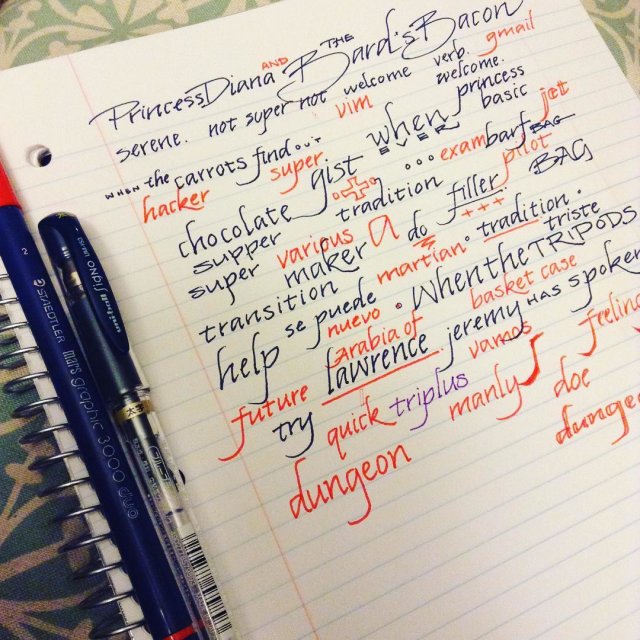 PrincessDiana AND THE Bard's Bacon
serene. not super not welcome verb. gmail
vim welcome.
princess
basic
WHEN the carrots find... when jet
EVER
hacker super gist ... exam barf BAG
pilot
chocolate tradition filler BAG
supper various a do +++ tradition.
super maker martian triste
transition When the TRIPODS
help se puede basket case
nuevo jeremy HAS spoken
arabia of
lawrence vamos feeling
future
try quick triplus manly doe
dungeon
dungeon
2 STAEDTLER mars graphic 3000 duo
uni-ball SIGNO